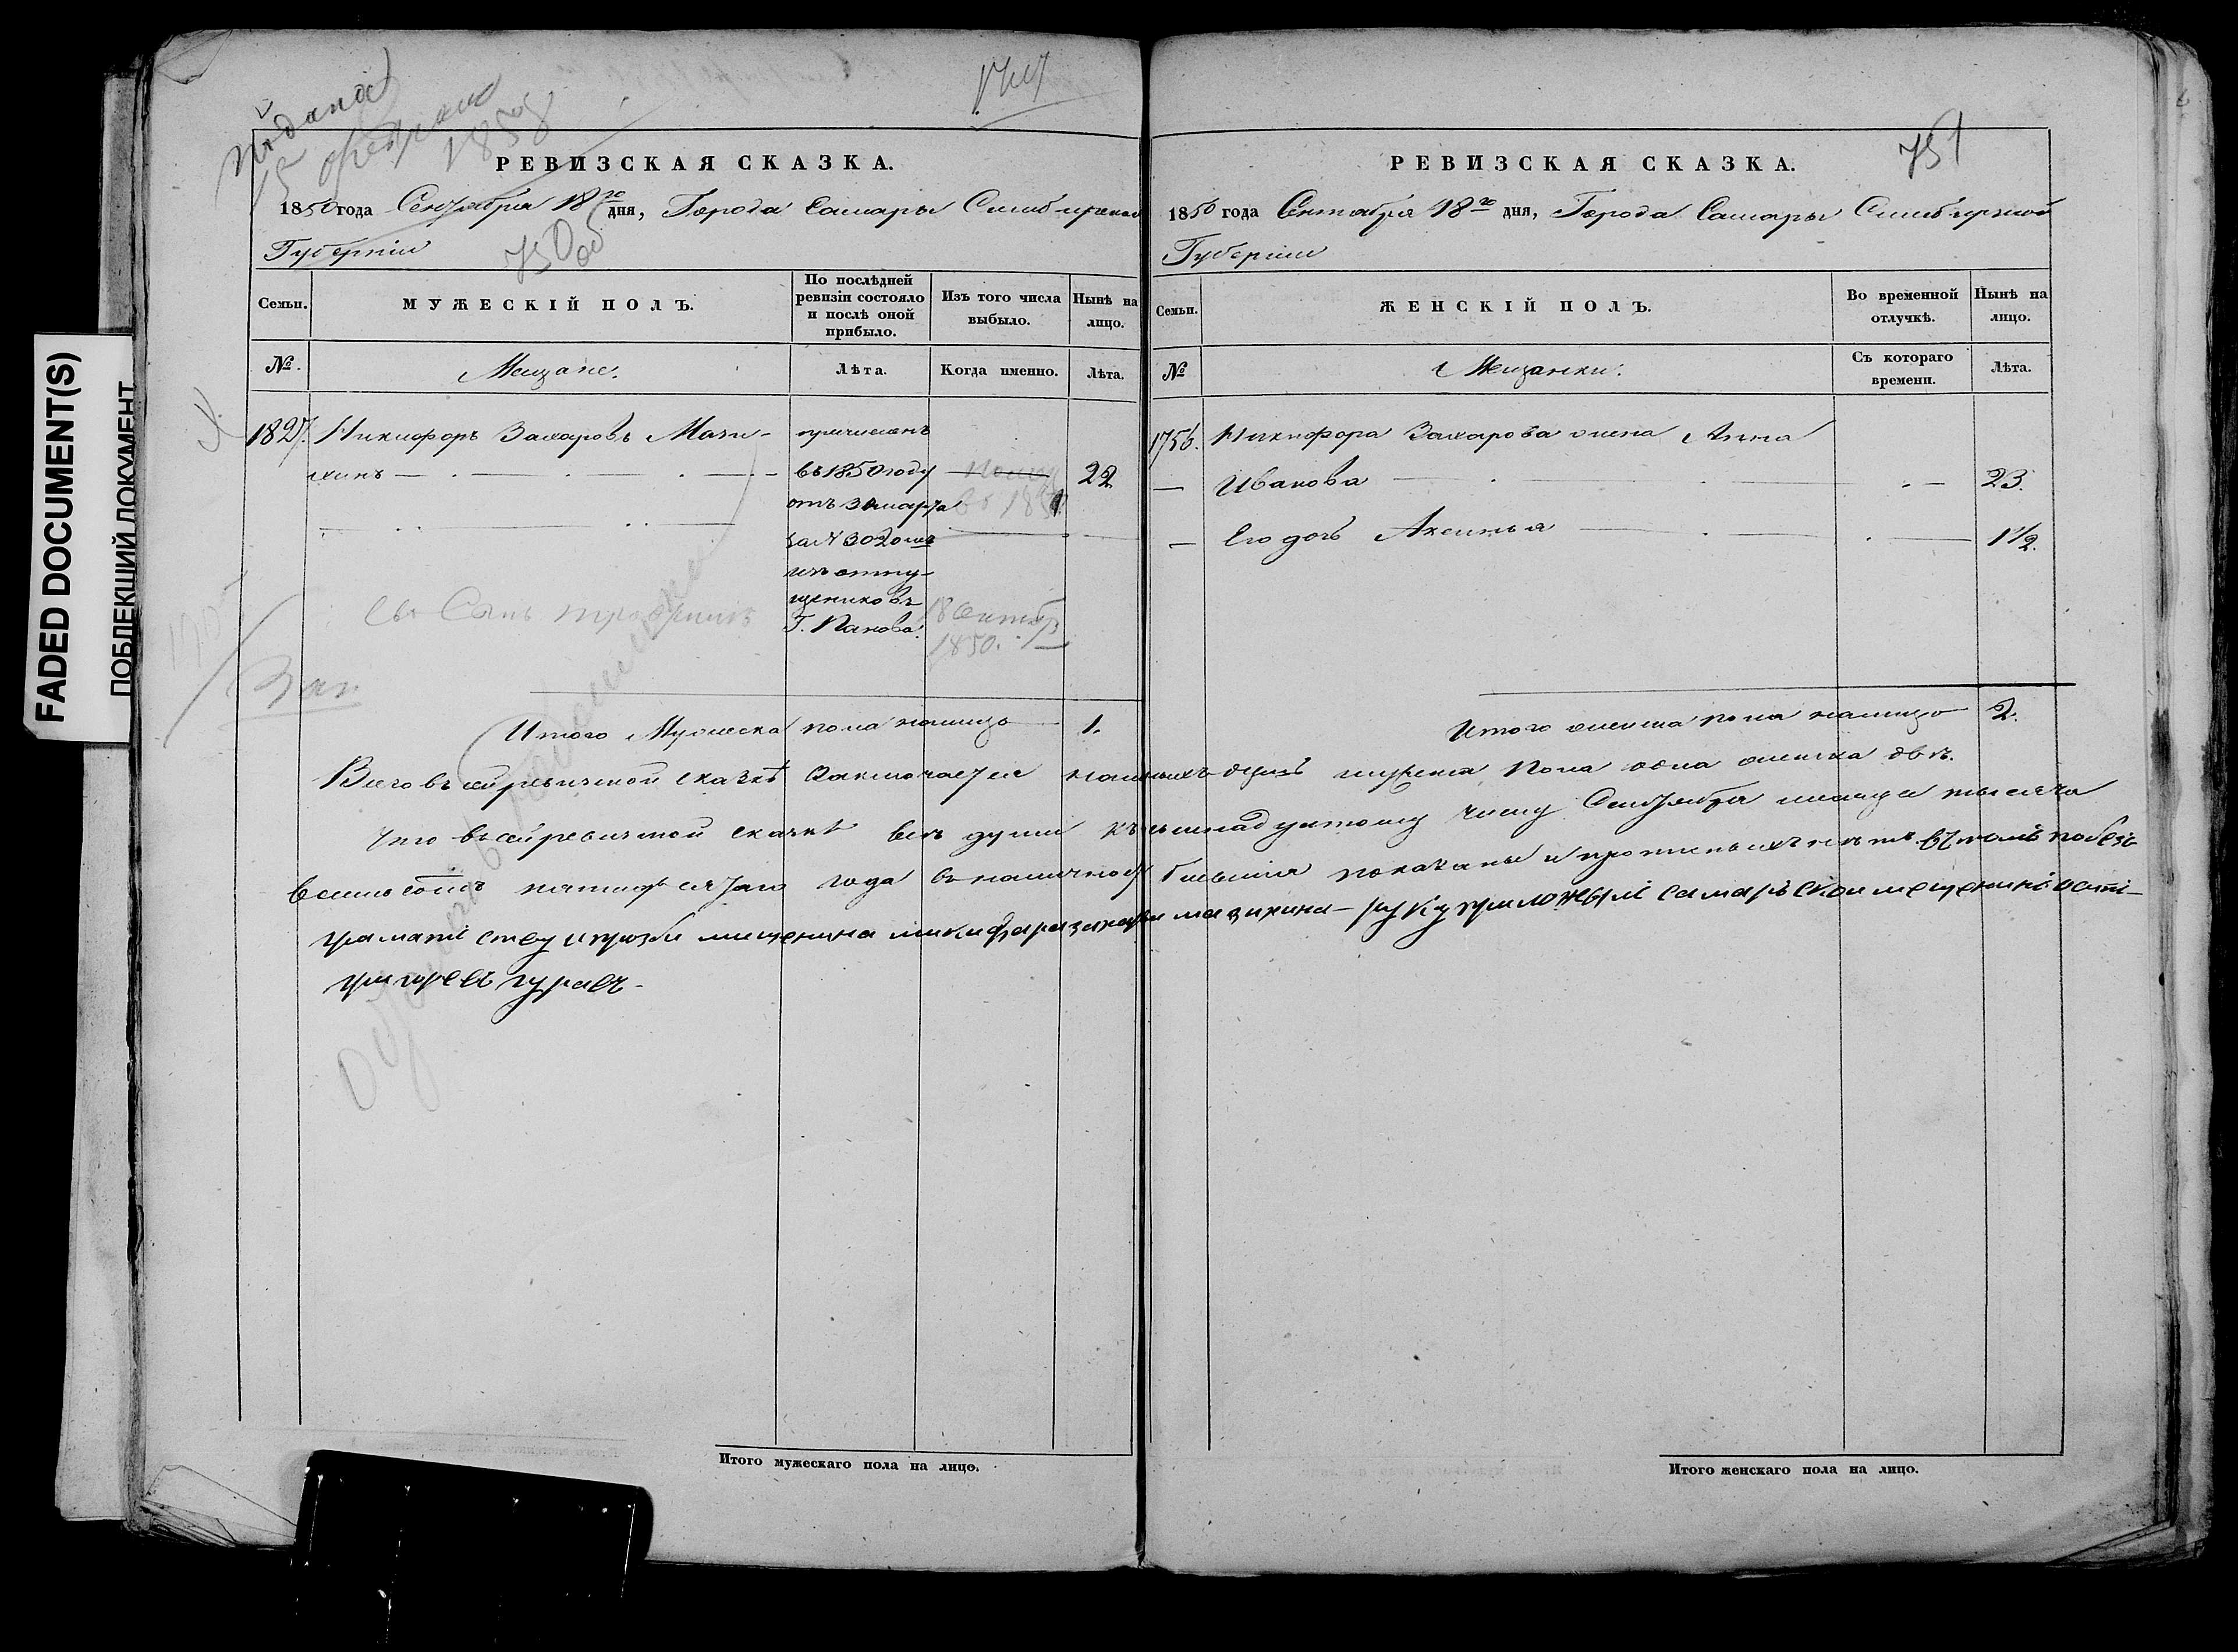 FADED DOCUMENT(S)
ПОБЛЕКШИЙ ДОКУМЕНТ
Подана
15 февраля
1850
РЕВИЗСКАЯ СКАЗКА.
1850 года Сентября 18го дня, Города Самары Симбирской
Губернии
750 об
Семьи.
МУЖЕСКІЙ ПОЛЪ.
По послѣдней ревизіи состояло и послѣ оной прибыло.
Изъ того числа выбыло.
Нынѣ на лицо.
№.
Мещане.
Лѣта.
Когда именно.
Лѣта.
1827. Никифоръ Захаровъ Мази-
хинъ
причисленъ
въ 1850 году
отъ 31 марта
за № 3020мъ
изъ отпу-
щениковъ
Г. Панова.
22
18 Сентяб.
1850.
Зап
Итого Мужеска пола налицо 1.
751
РЕВИЗСКАЯ СКАЗКА.
1850 года Сентября 18го дня, Города Самары Симбирской
Губернии
Семьи.
ЖЕНСКІЙ ПОЛЪ.
Во временной отлучкѣ.
Нынѣ на лицо.
№
Мещанки.
Съ котораго времени.
Лѣта.
1756. Никифора Захарова жена Анна
Иванова 23.
Его дочь Аксинья 1 1/2.
Итого женска пола налицо 2.
Всего въ сей ревизской сказкѣ заключается наличныхъ душъ мужеска пола одна женска двѣ.
Что въ сей ревизской сказкѣ всѣ души къ осьмнадцатому числу Сентября месяца тысяча
восемьсотъ пятьдесятаго года въ наличности бывшия показаны и прописныхъ нетъ въ томъ по безъ
грамати ству и прозбе мещенина микифара захарава мазихина руку приложылъ самарьской мещенинъ
григорей гуравъ
Итого мужескаго пола на лицо.
Итого женскаго пола на лицо.